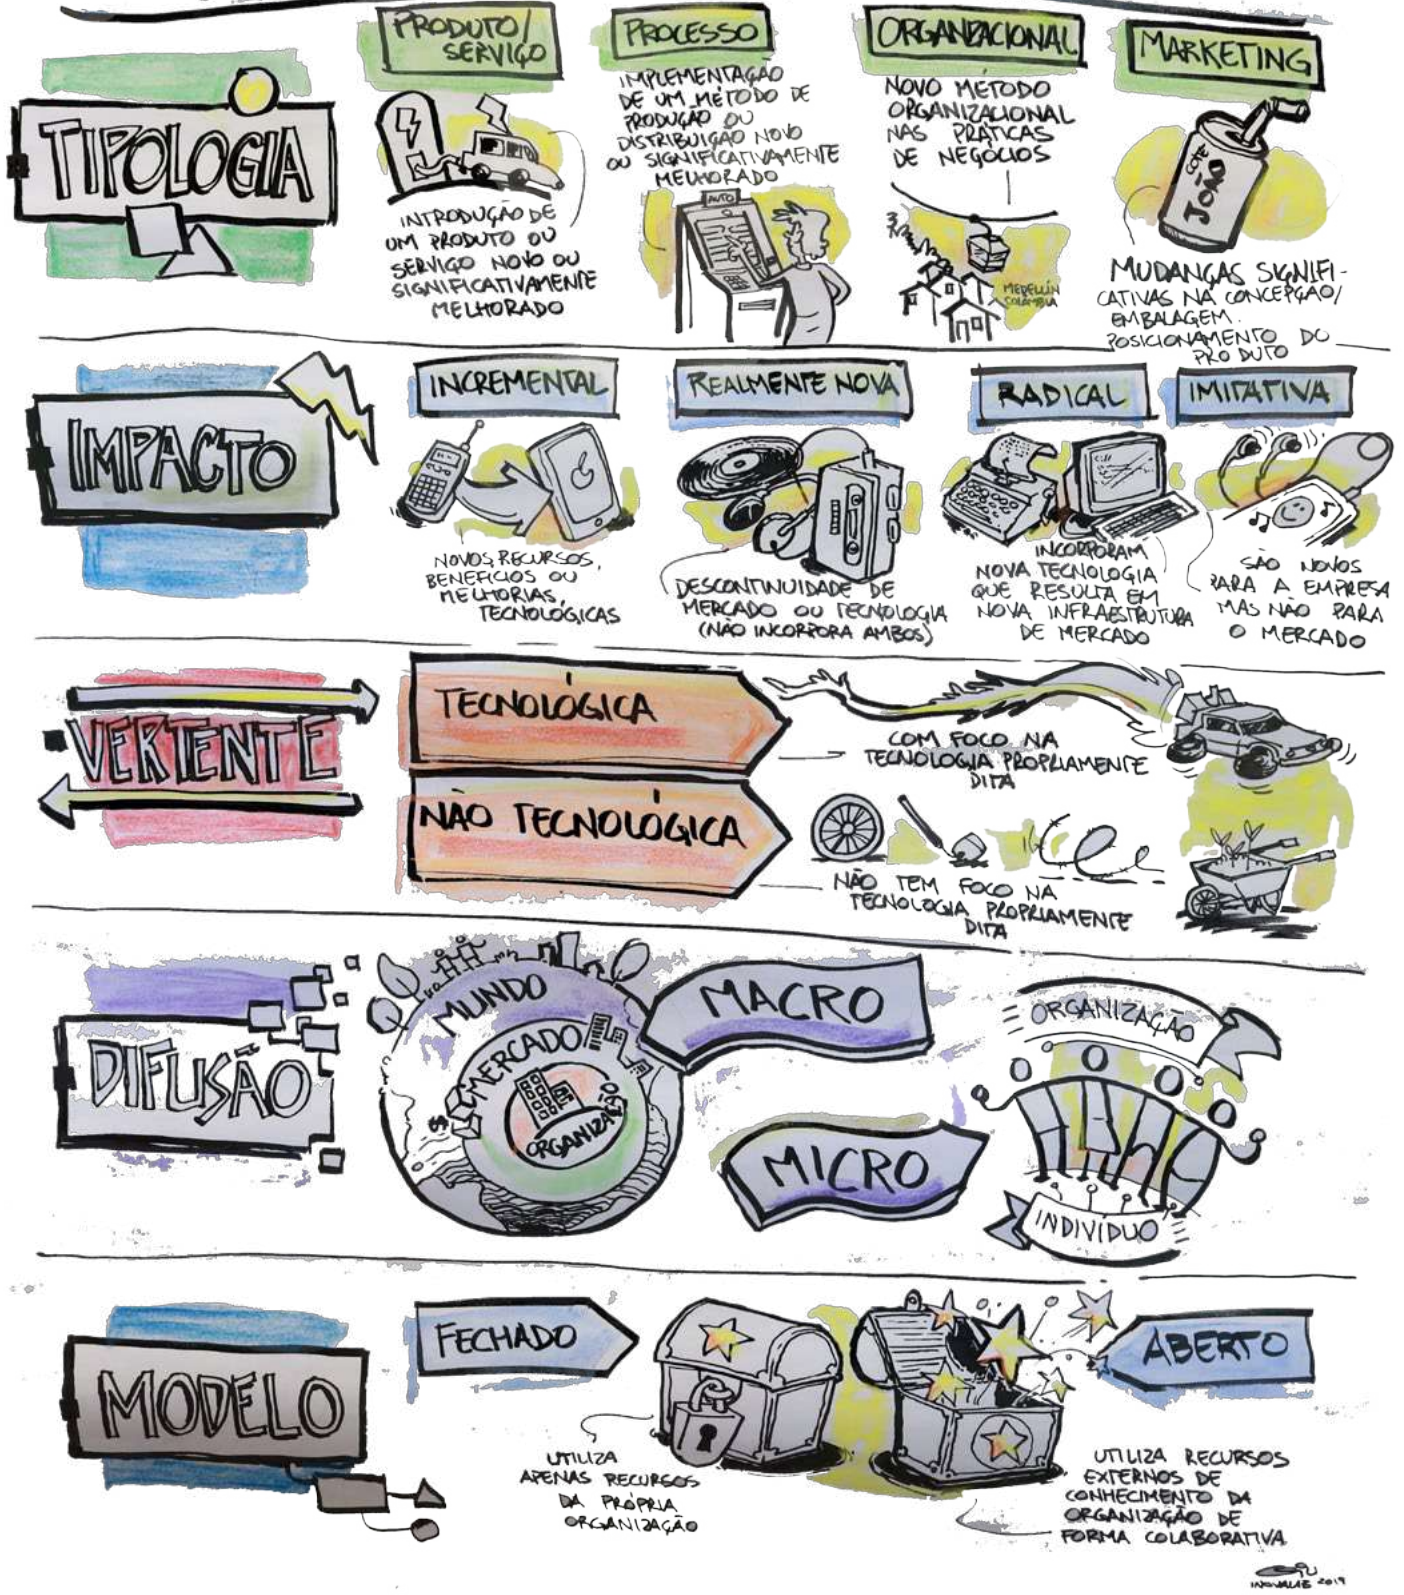 TIPOLOGIA
PRODUTO/
SERVIÇO
INTRODUÇÃO DE
UM PRODUTO OU
SERVIÇO NOVO OU
SIGNIFICATIVAMENTE
MELHORADO
PROCESSO
IMPLEMENTAÇÃO
DE UM MÉTODO DE
PRODUÇÃO OU
DISTRIBUIÇÃO NOVO
OU SIGNIFICATIVAMENTE
MELHORADO
AUTO
ORGANIZACIONAL
NOVO MÉTODO
ORGANIZACIONAL
NAS PRÁTICAS
DE NEGÓCIOS
MEDELLÍN
COLOMBIA
MARKETING
JOÃO
MUDANÇAS SIGNIFI-
CATIVAS NA CONCEPÇÃO/
EMBALAGEM.
POSICIONAMENTO DO
PRODUTO
IMPACTO
INCREMENTAL
NOVOS RECURSOS,
BENEFÍCIOS OU
MELHORIAS
TECNOLÓGICAS
REALMENTE NOVA
DESCONTINUIDADE DE
MERCADO OU TECNOLOGIA
(NÃO INCORPORA AMBOS)
RADICAL
INCORPORAM
NOVA TECNOLOGIA
QUE RESULTA EM
NOVA INFRAESTRUTURA
DE MERCADO
IMITATIVA
SÃO NOVOS
PARA A EMPRESA
MAS NÃO PARA
O MERCADO
VERTENTE
TECNOLÓGICA
COM FOCO NA
TECNOLOGIA PROPRIAMENTE
DITA
NÃO TECNOLÓGICA
NÃO TEM FOCO NA
TECNOLOGIA PROPRIAMENTE
DITA
DIFUSÃO
MUNDO
MERCADO
ORGANIZAÇÃO
MACRO
MICRO
ORGANIZAÇÃO
INDIVÍDUO
MODELO
FECHADO
UTILIZA
APENAS RECURSOS
DA PRÓPRIA
ORGANIZAÇÃO
ABERTO
UTILIZA RECURSOS
EXTERNOS DE
CONHECIMENTO DA
ORGANIZAÇÃO DE
FORMA COLABORATIVA
2019